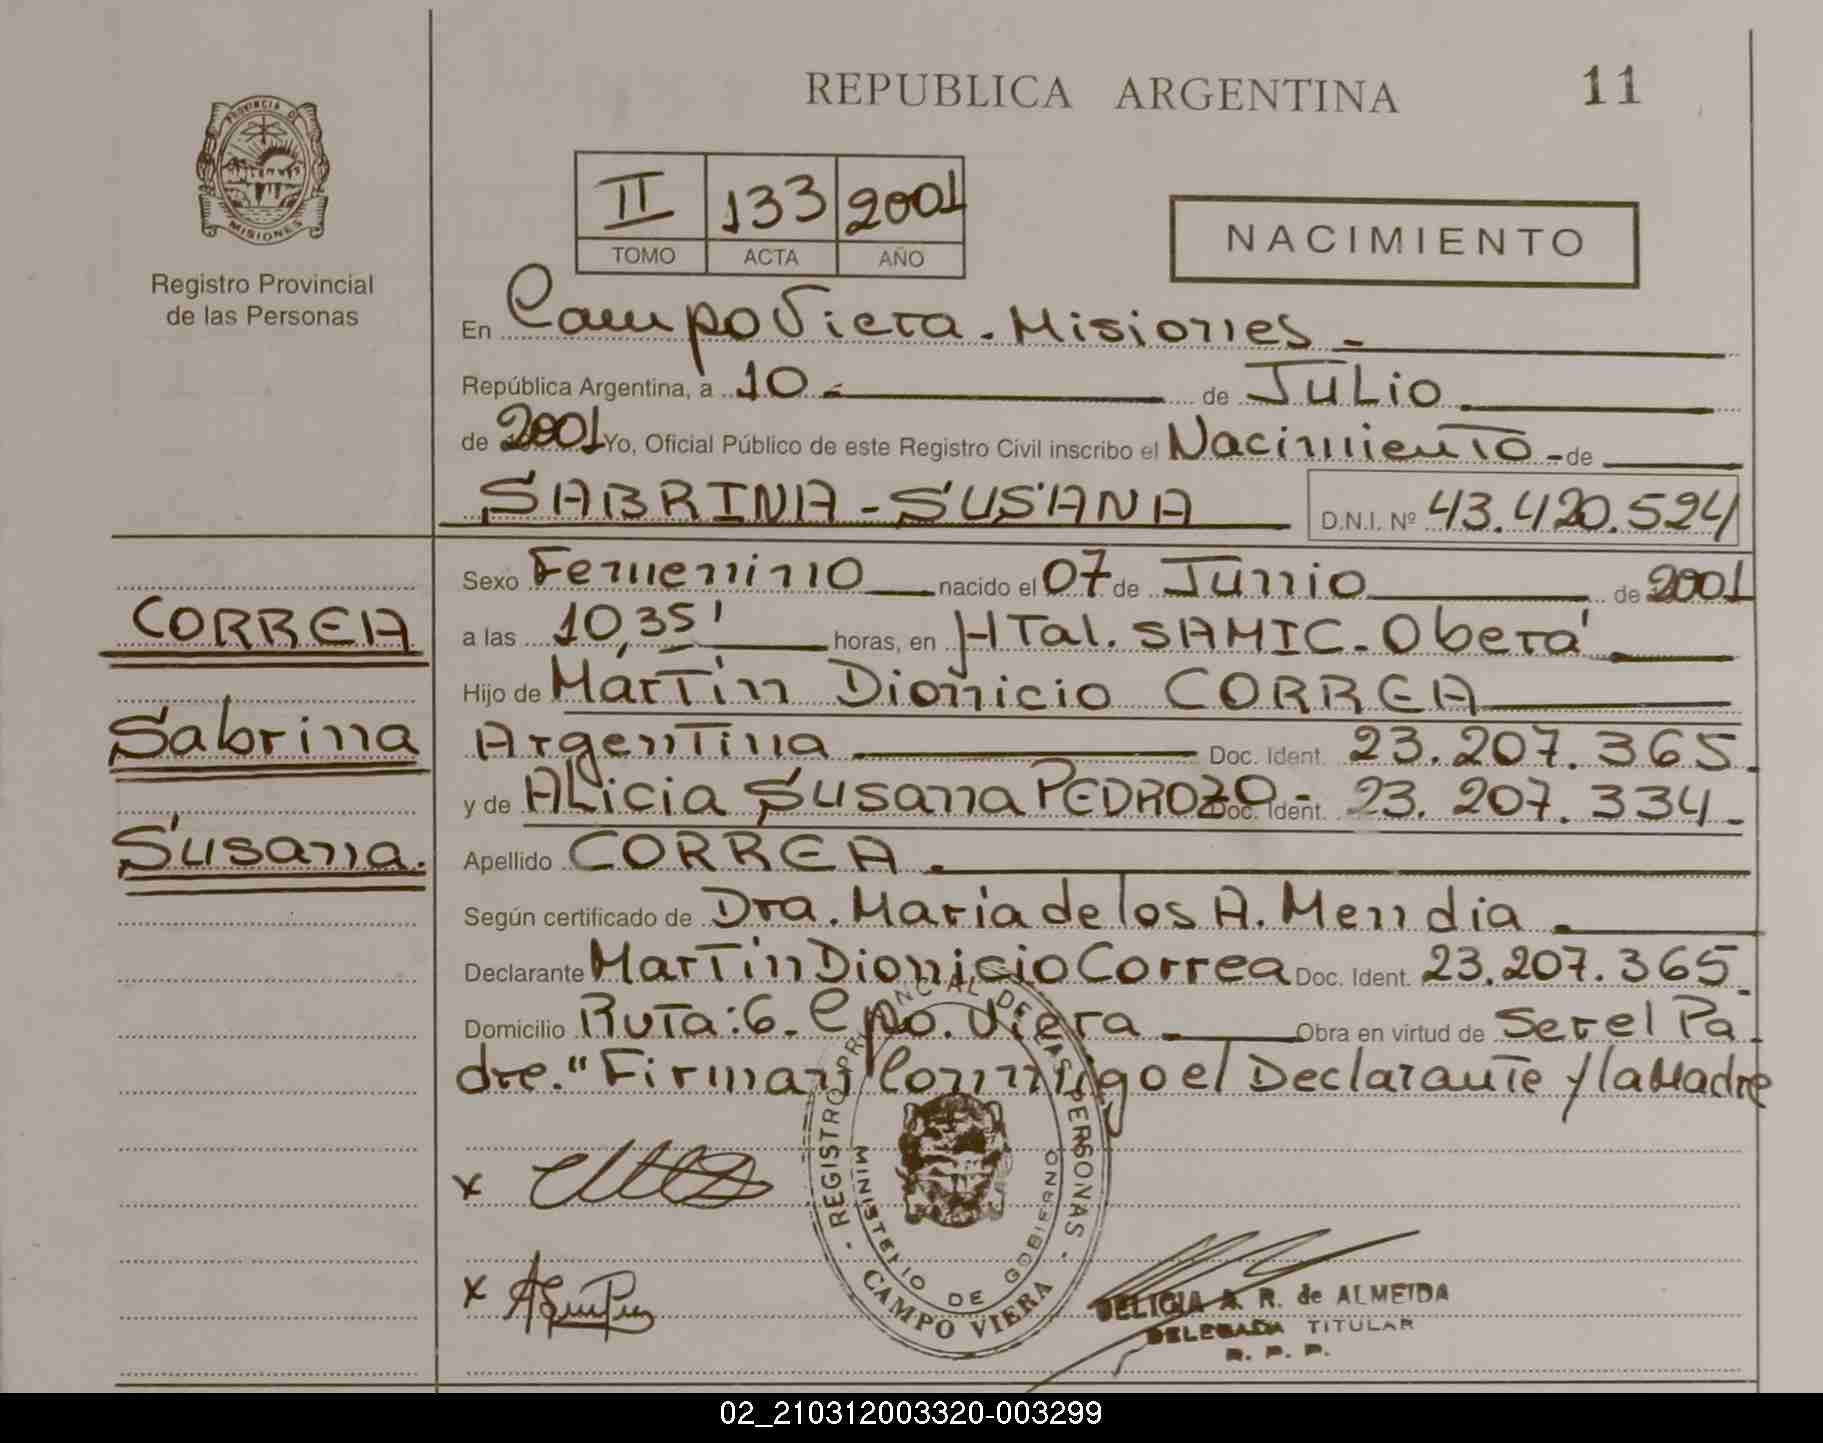 REPUBLICA ARGENTINA
11
PROVINCIA DE
MISIONES
Registro Provincial
de las Personas
II 133 2001
TOMO ACTA AÑO
NACIMIENTO
En Campo Viera - Misiones -
República Argentina, a 10 - de Julio
de 2001 Yo, Oficial Público de este Registro Civil inscribo el Nacimiento - de
SABRINA - SUSANA D.N.I. Nº 43.420.524
Sexo Femenino nacido el 07 de Junio de 2001
CORREA
a las 10,35' horas, en HTal. SAMIC - Oberá
Hijo de Martín Dionicio CORREA
Sabrina
Argentina Doc. Ident. 23.207.365.
y de Alicia Susana PEDROZO - Doc. Ident. 23.207.334 -
Susana.
Apellido CORREA.
Según certificado de Dra. María de los A. Mendia.
Declarante Martín Dionicio Correa Doc. Ident. 23.207.365
Domicilio Ruta: 6 - Cpo. Viera - Obra en virtud de Ser el Pa
dre." Firman Conmigo el Declarante y la Madre
REGISTRO PROVINCIAL DE LAS PERSONAS
MINISTERIO DE GOBIERNO
CAMPO VIERA
x
x
DELICIA A. R. de ALMEIDA
DELEGADA TITULAR
R. P. P.
02_210312003320-003299